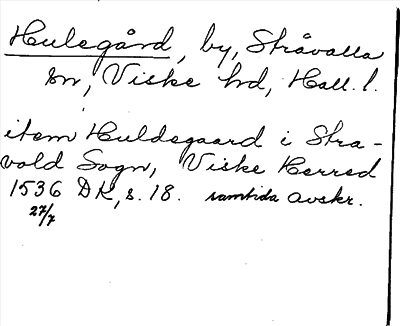 Hulegård, by, Stråvalla
sn, Viske hd, Hall. l.
item Huldegaard i Stra-
vald Sogn, Viske Herred
1536 DK, s. 18. samtida avskr.
27/7